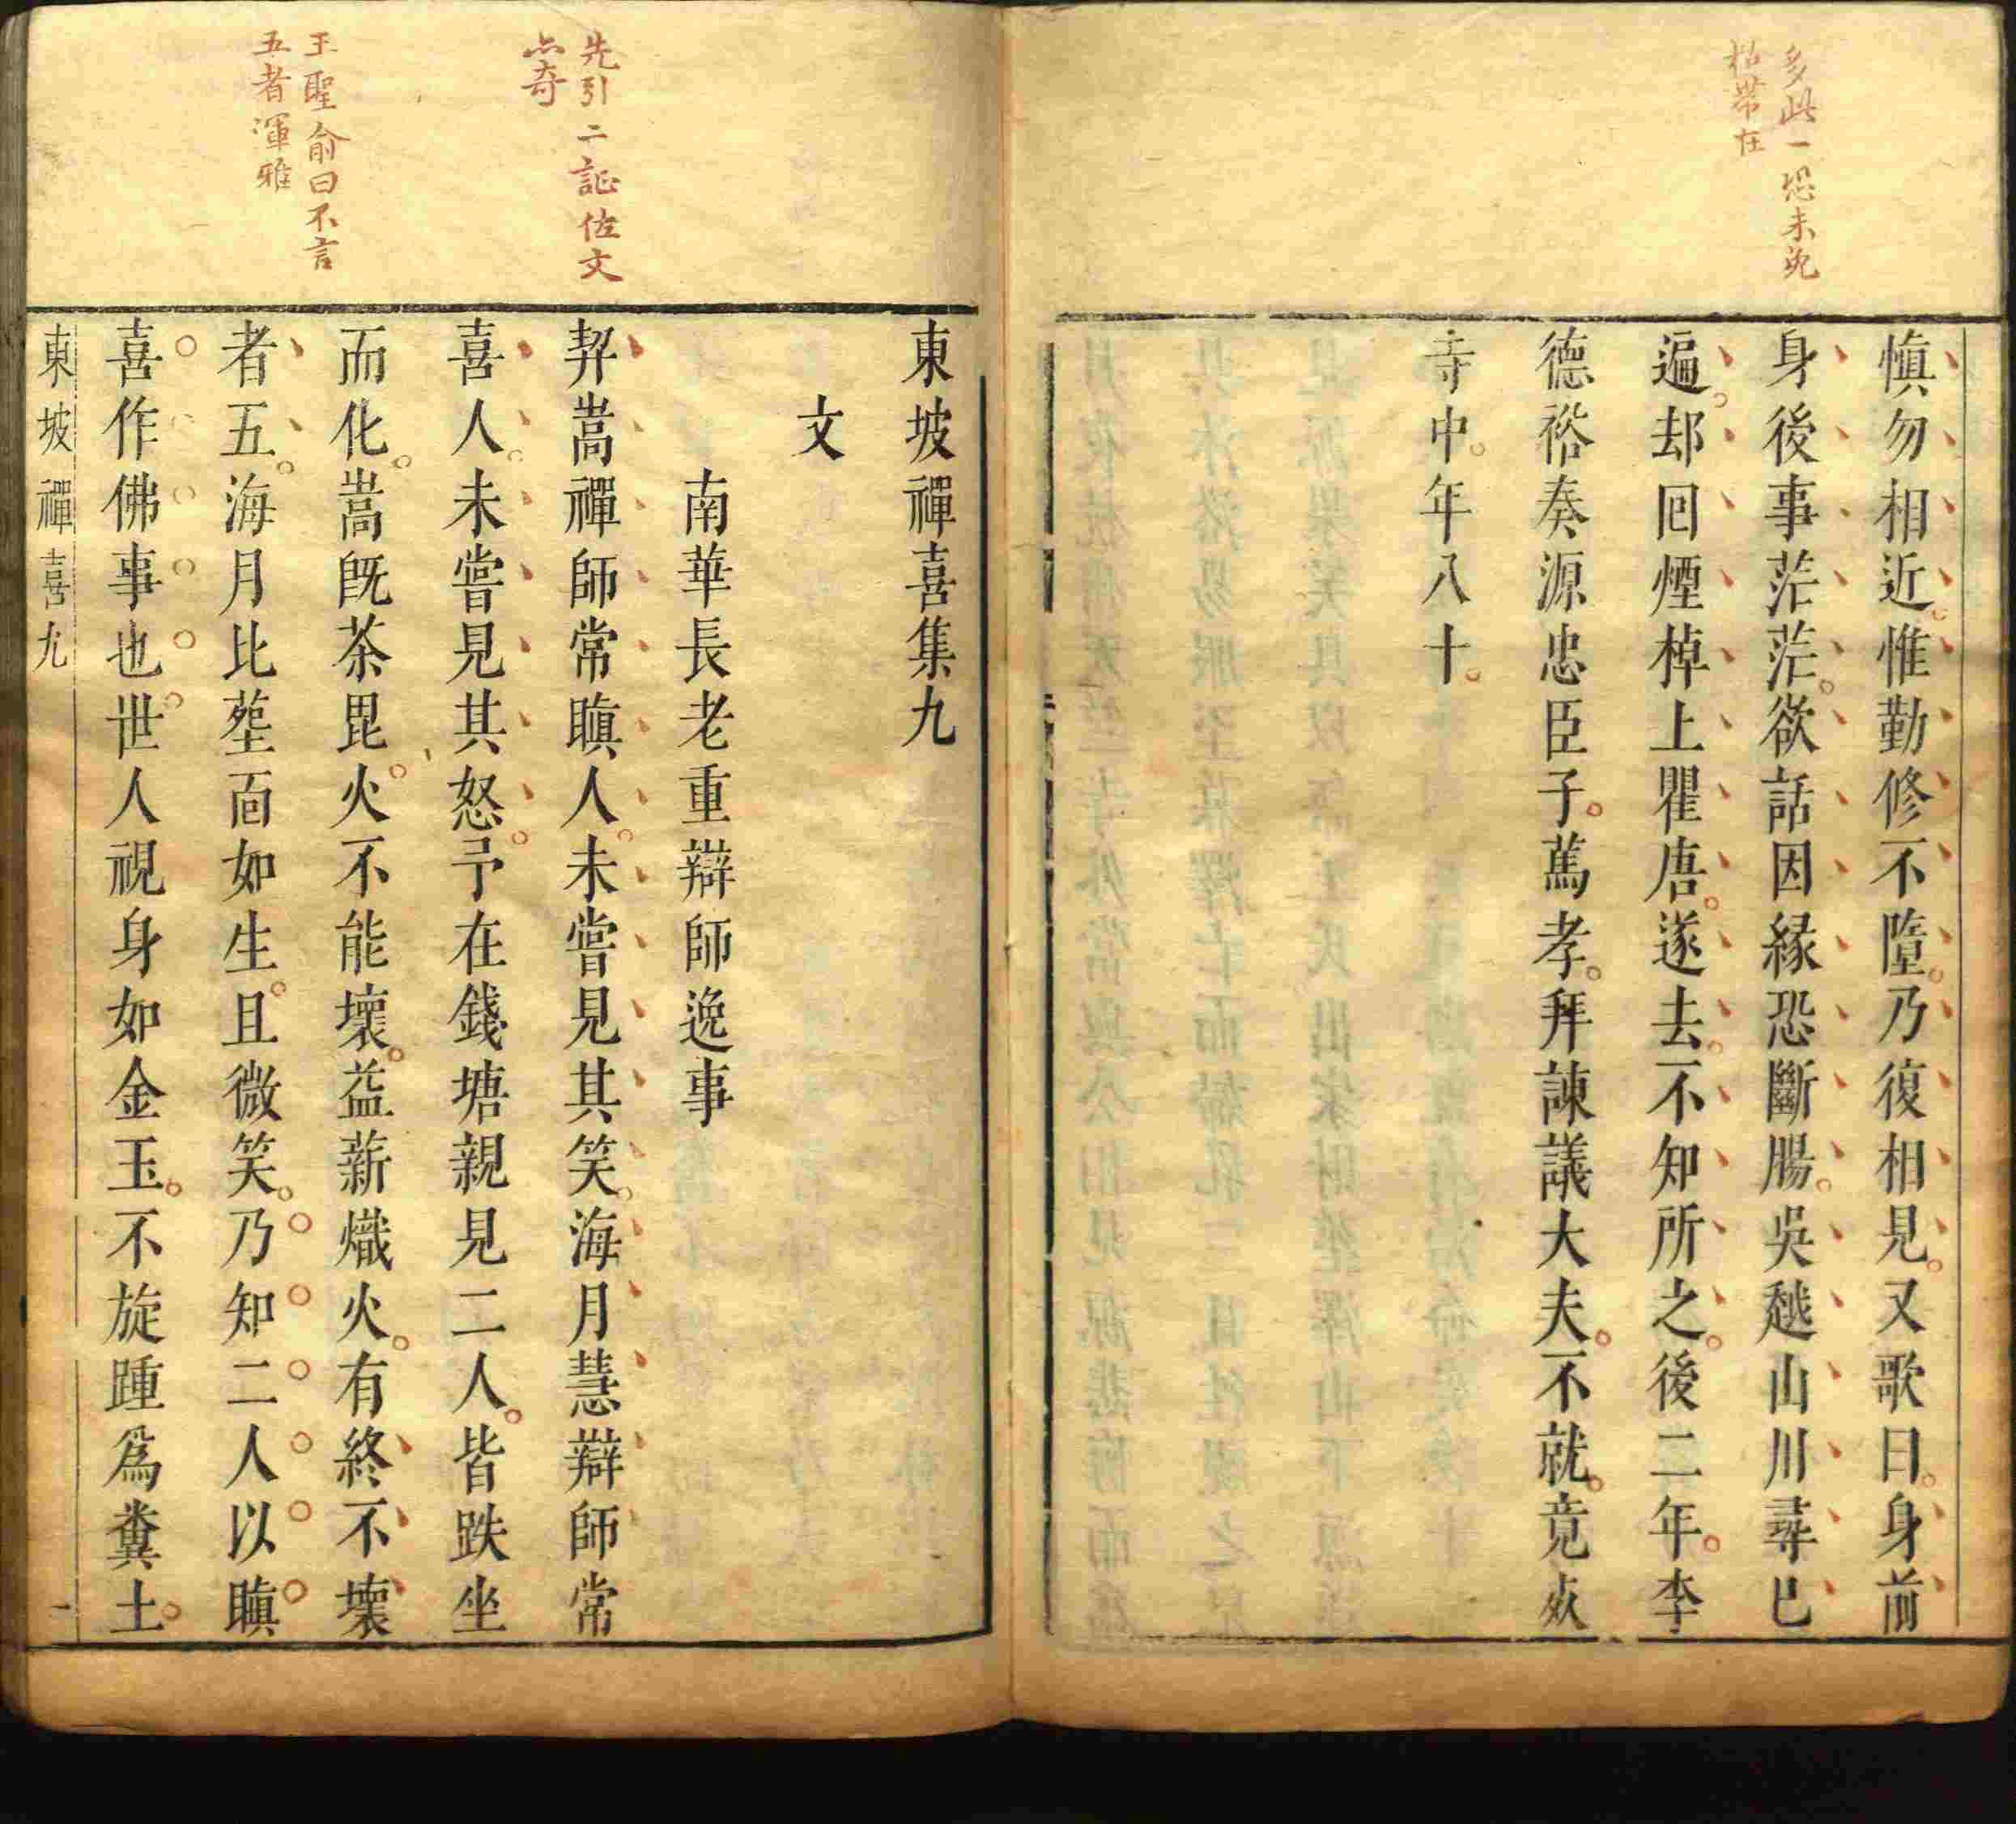 多此一恐未免
招帶在
慎勿相近惟勤修不墮乃復相見又歌曰身前
身後事茫茫欲話因緣恐斷腸吳越山川尋已
遍却回煙棹上瞿唐遂去不知所之後二年李
德裕奏源忠臣子萬孝拜諫議大夫不就竟㱙
寺中年八十
東坡禪喜集九
文
南華長老重辯師逸事
先引二証佐文
亦奇
契嵩禪師常瞋人未嘗見其笑海月慧辯師常
喜人未嘗見其怒予在錢塘親見二人皆趺坐
而化嵩既茶毘火不能壞益薪熾火有終不壞
者五海月比塟面如生且微笑乃知二人以瞋
喜作佛事也世人視身如金玉不旋踵爲糞土
王聖俞曰不言
五者渾雅
東坡禪喜九
一